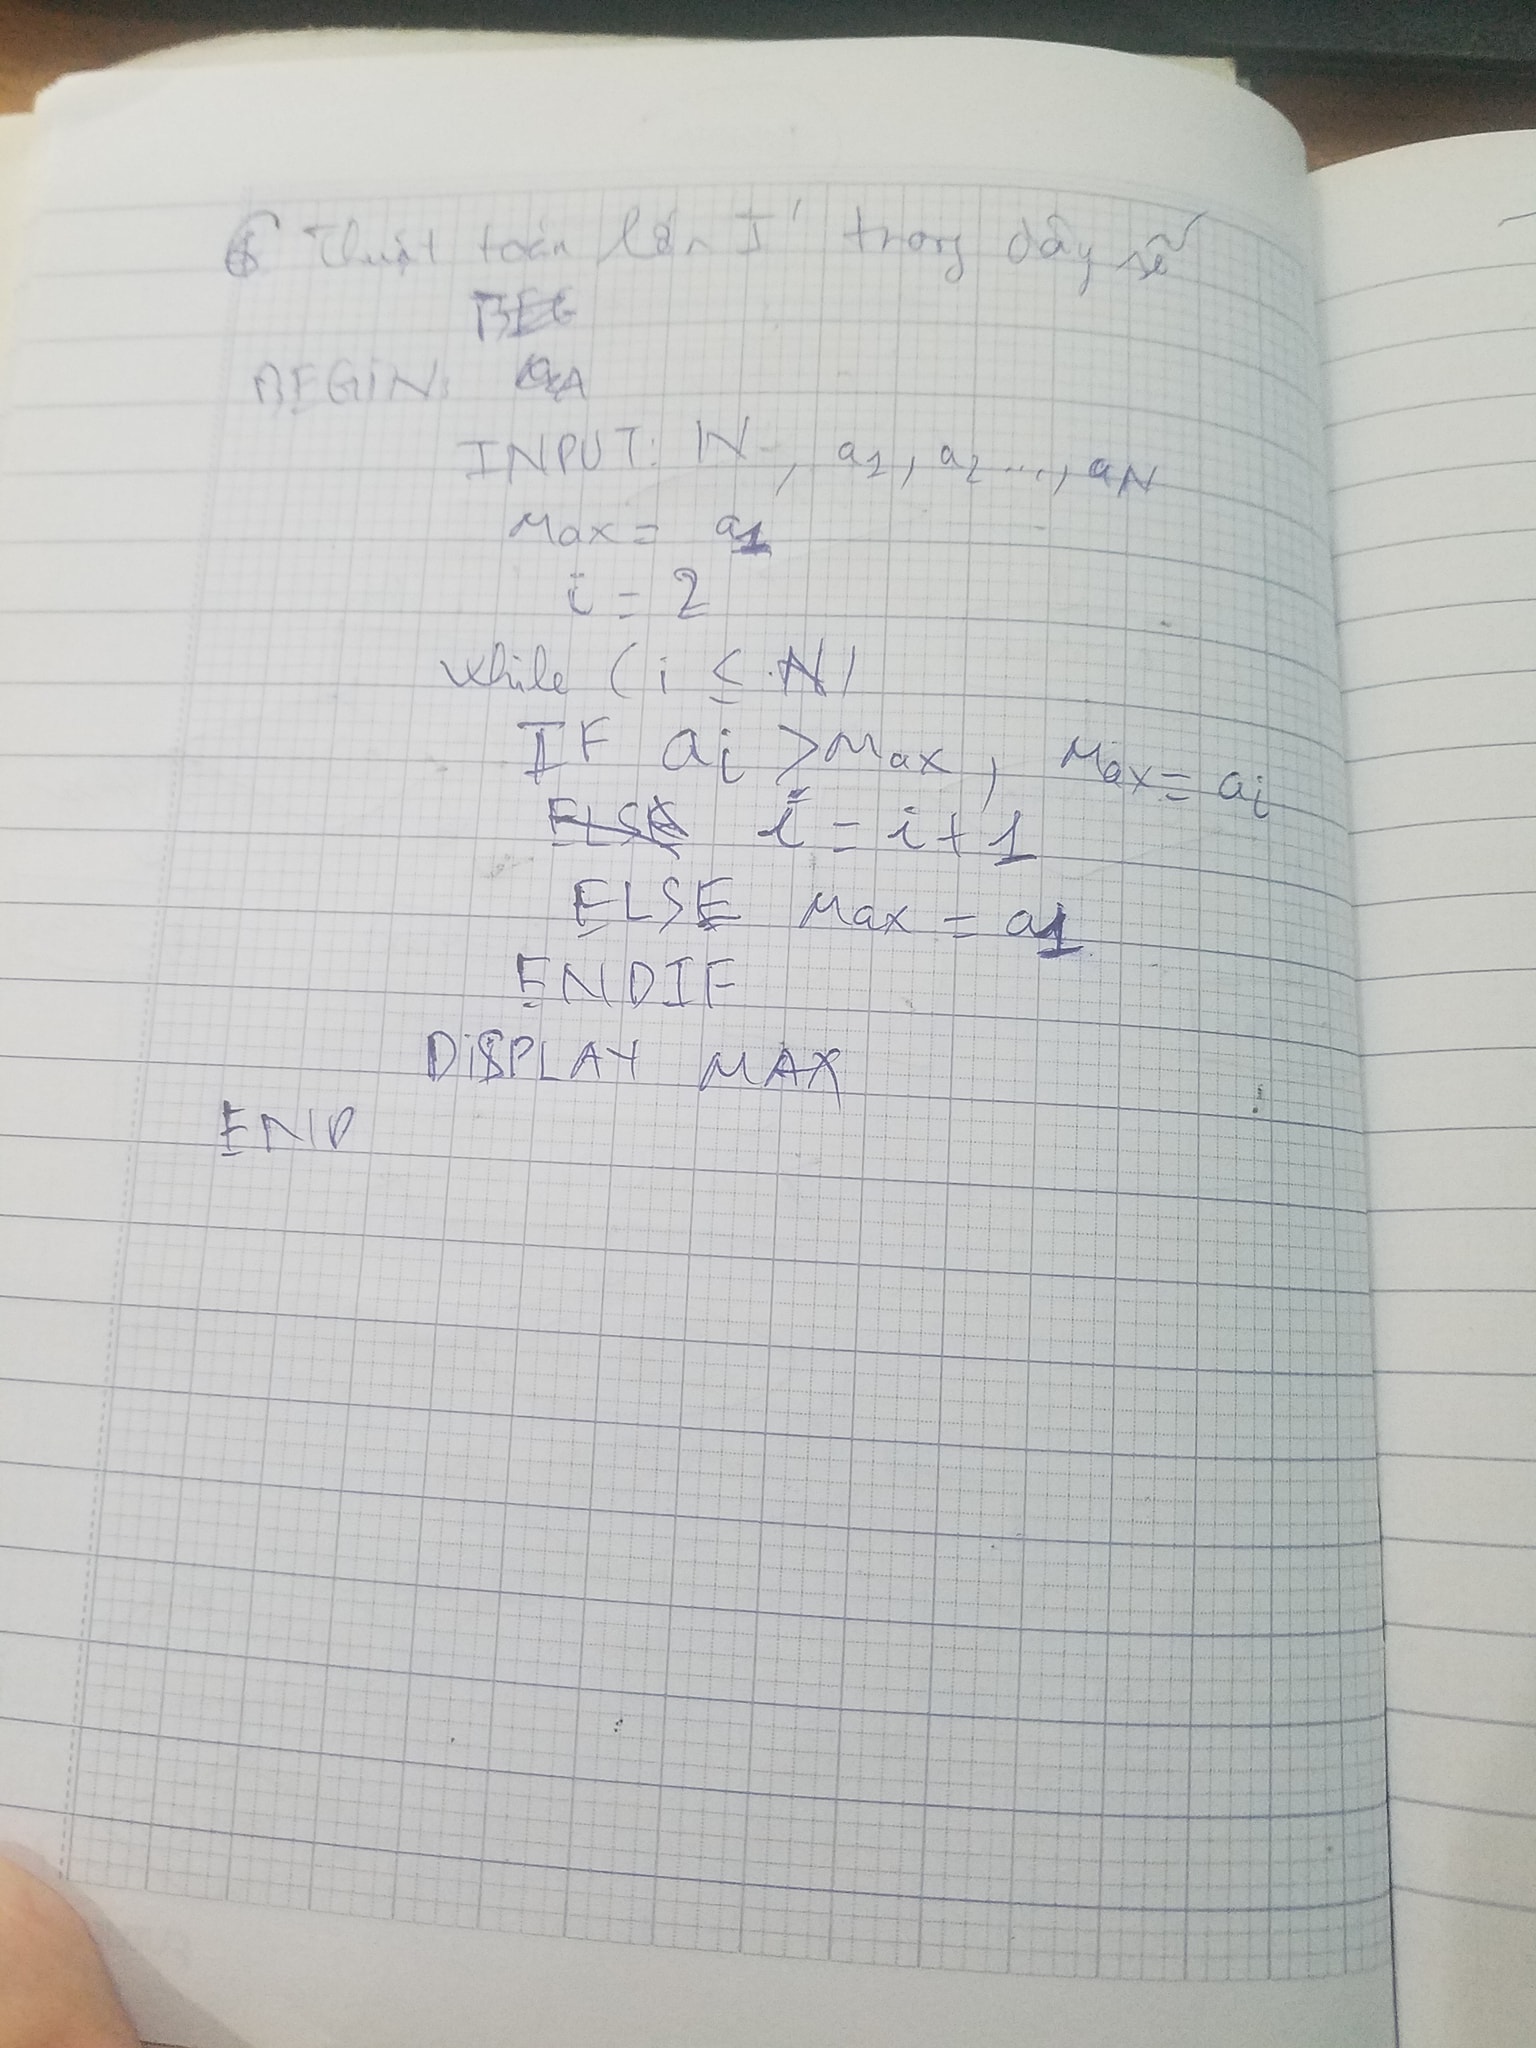 Thuật toán lớn I' trong dãy số
BEG
BEGIN:
INPUT: N, a1, a2 ..., aN
Max = a1
i = 2
While ( i ≤ N)
IF ai > Max, Max = ai
ELSE i = i + 1
ELSE Max = a1
ENDIF
DISPLAY MAX
END